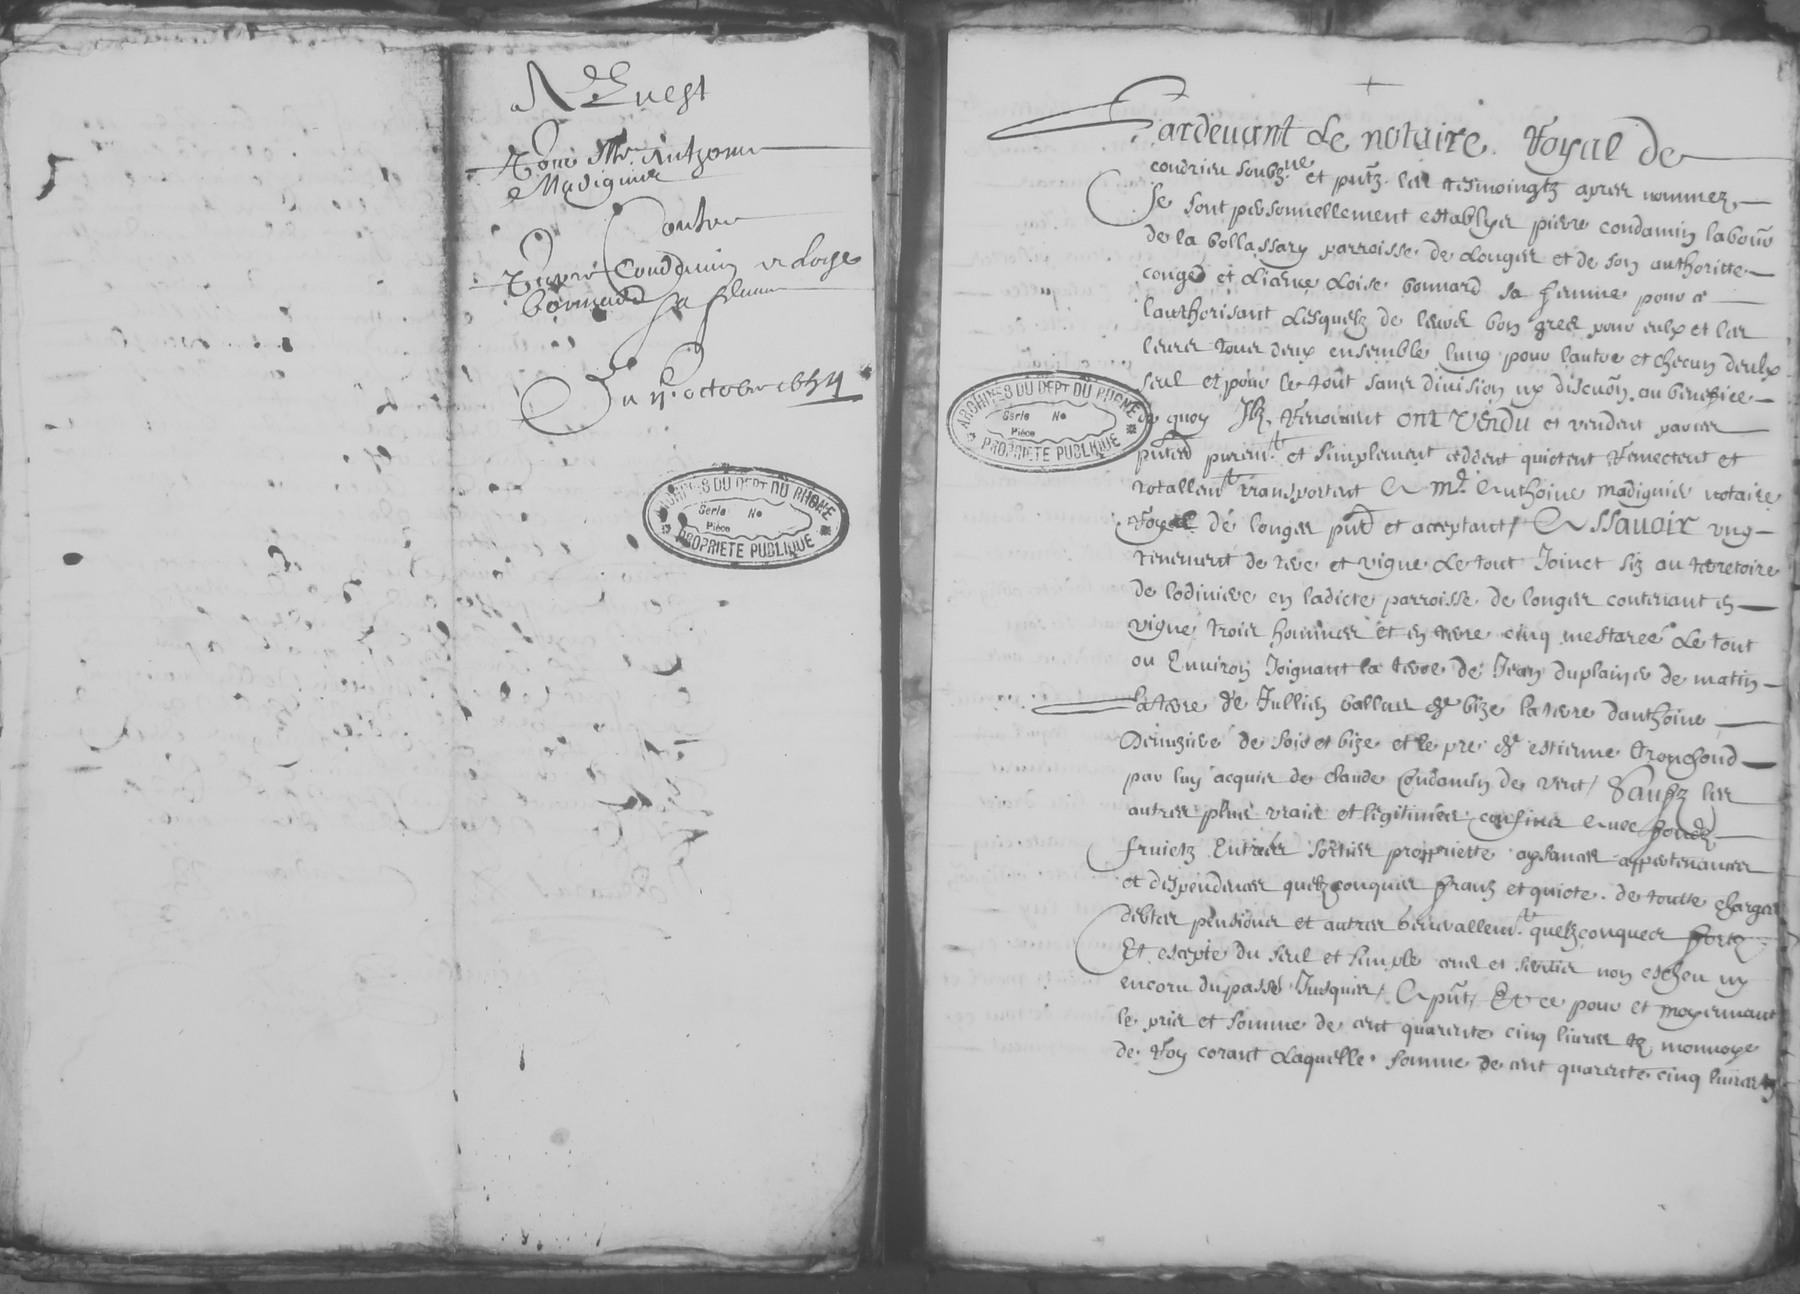 Acquest
Pour Mre Anthoine
Madiguier
Contre
Pierre Condamin et Loyse
bonnard sa femme
Du octobre 1654
ARCHIVES DU DEPT DU RHONE
Serie No
Pièce
PROPRIETE PUBLIQUE
Pardevant le notaire Royal de
condrieu soubzne et pntz les tesmoingtz apres nommez
Se sont personnellement establyes pierre condamin labour
de la bollassary parroisse de longes et de son authoritte
conged et licence Loise bonnard sa femme pour ce
lauthorisant lesquelz de leurs bon grez pour eulx et les
leurs tous deux ensemble lung pour lautre et checun deulx
seul et pour le tout sans division ny discuon au benefice
de quoy Ilz renoncent ONT VENDU et vendent par ces
pntes puremt et simplement ceddent quictent remectent et
totallemt transportent A Me Anthoine Madiguier notaire
Royal de longes pnt et acceptant / Assavoir ung
tenement de terre et vigne le tout Joinct siz au terretoire
de lodiniere en ladicte parroisse de longes contenant en
vigne trois hommees et en terre cinq mestarees le tout
ou Environ Joignant la terre de Jean duplainer de matin
la terre de Jullien ballue de bize la terre danthoine
de soir et bize et le pre de estienne
par luy acquis de claude Condamin de vent / Saufz les
autres plus vraies et legitimes confins Avec fondz
fruictz Entrées sorties proprietté aysances appertenances
et despendences quelzconques franz et quicte de toutte charges
debtes pensions et autres generallemt quelzconques
Et excepte du seul et simple cens et servis non escheu ny
encoru du passé Jusques / A pnt / Et ce pour et moyennant
le pris et somme de cent quarente cinq livres tz monnoye
de Roy corant Laquelle somme de cent quarente cinq livres tz
ARCHIVES DU DEPT DU RHONE
Serie No
Pièce
PROPRIETE PUBLIQUE